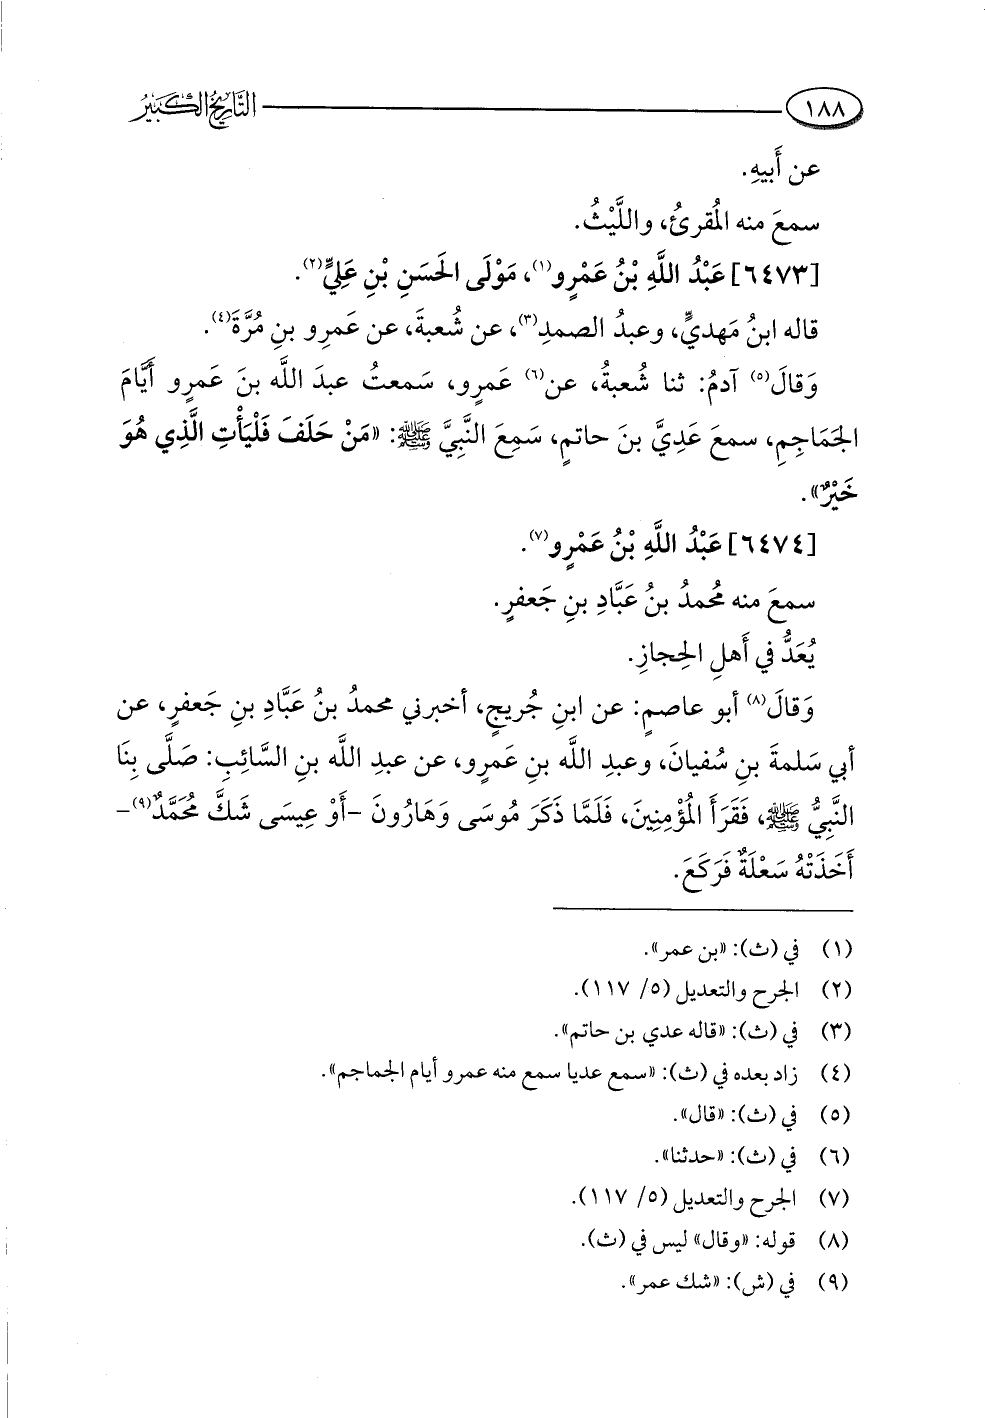 ١٨٨ التَّارِيخُ الكَبِيرُ
عن أَبيهِ.
سمعَ منه المُقرئُ، واللَّيْثُ.
[٦٤٧٣] عَبْدُ اللَّهِ بْنُ عَمْرٍو(١)، مَوْلَى الحَسَنِ بْنِ عَلِيٍّ(٢).
قاله ابنُ مَهديٍّ، وعبدُ الصمدِ(٣)، عن شُعبةَ، عن عَمرِو بنِ مُرَّةَ(٤).
وَقالَ(٥) آدمُ: ثنا شُعبةُ، عن(٦) عَمرٍو، سَمعتُ عبدَ اللَّه بنَ عَمرٍو أَيَّامَ
الجَمَاجِمِ، سمعَ عَدِيَّ بنَ حاتمٍ، سَمِعَ النَّبِيَّ ﷺ: «مَنْ حَلَفَ فَلْيَأْتِ الَّذِي هُوَ
خَيْرٌ».
[٦٤٧٤] عَبْدُ اللَّهِ بْنُ عَمْرٍو(٧).
سمعَ منه محمدُ بنُ عَبَّادِ بنِ جَعفرٍ.
يُعَدُّ في أَهلِ الحِجازِ.
وَقالَ(٨) أبو عاصمٍ: عن ابنِ جُريجٍ، أخبرني محمدُ بنُ عَبَّادِ بنِ جَعفرٍ، عن
أبي سَلمةَ بنِ سُفيانَ، وعبدِ اللَّه بنِ عَمرٍو، عن عبدِ اللَّه بنِ السَّائِبِ: صَلَّى بِنَا
النَّبِيُّ ﷺ، فَقَرَأَ المُؤْمِنِينَ، فَلَمَّا ذَكَرَ مُوسَى وَهَارُونَ -أَوْ عِيسَى شَكَّ مُحَمَّدٌ(٩)-
أَخَذَتْهُ سَعْلَةٌ فَرَكَعَ.
(١) في (ث): «بن عمر».
(٢) الجرح والتعديل (٥/ ١١٧).
(٣) في (ث): «قاله عدي بن حاتم».
(٤) زاد بعده في (ث): «سمع عديا سمع منه عمرو أيام الجماجم».
(٥) في (ث): «قال».
(٦) في (ث): «حدثنا».
(٧) الجرح والتعديل (٥/ ١١٧).
(٨) قوله: «وقال» ليس في (ث).
(٩) في (ش): «شك عمر».